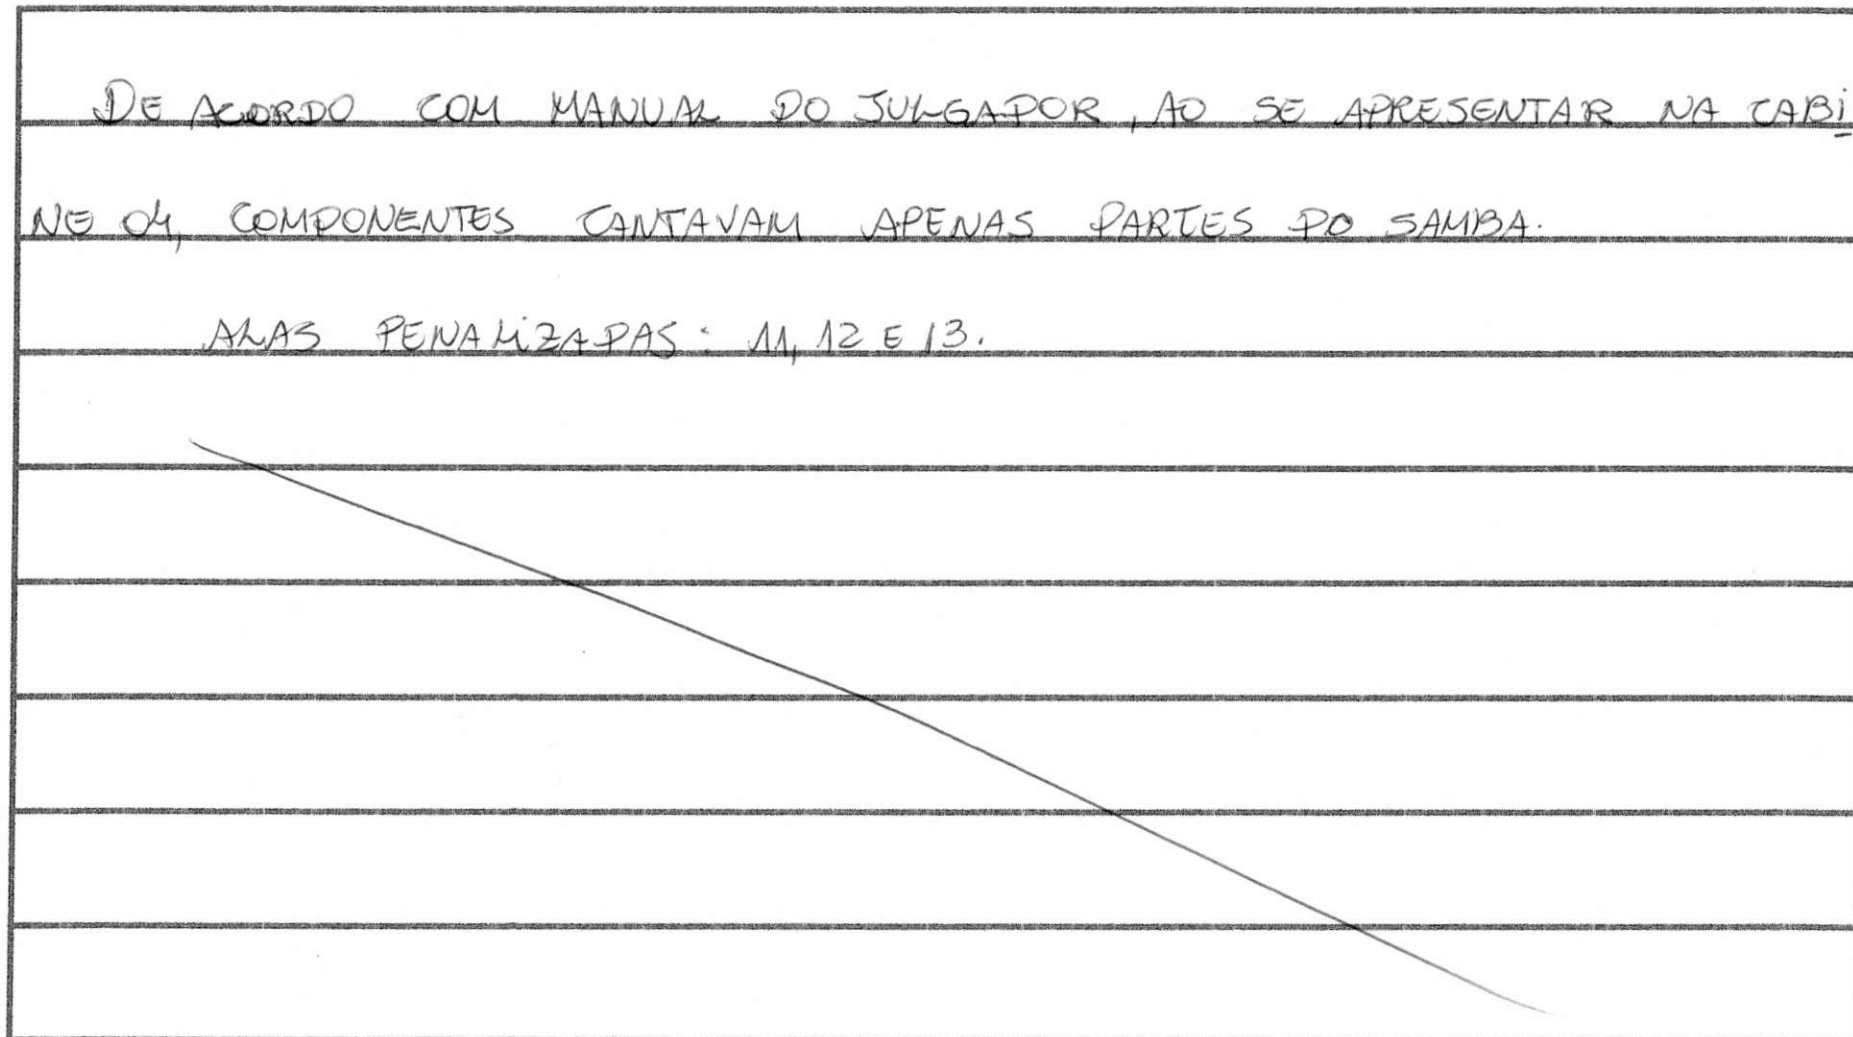 DE ACORDO COM MANUAL DO JULGADOR, AO SE APRESENTAR NA CABI
NE 04, COMPONENTES CANTAVAM APENAS PARTES DO SAMBA.
ALAS PENALIZADAS: 11, 12 E 13.